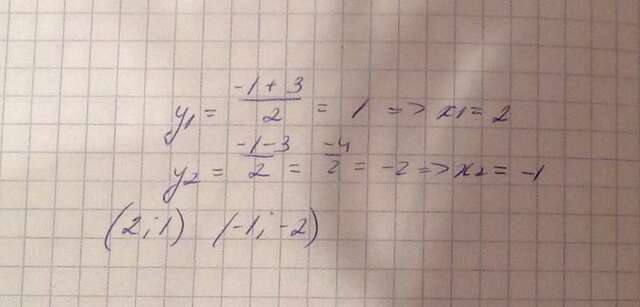 y1 = (-1 + 3)/2 = 1 => x1 = 2
y2 = (-1 - 3)/2 = -4/2 = -2 => x2 = -1
(2; 1) (-1; -2)